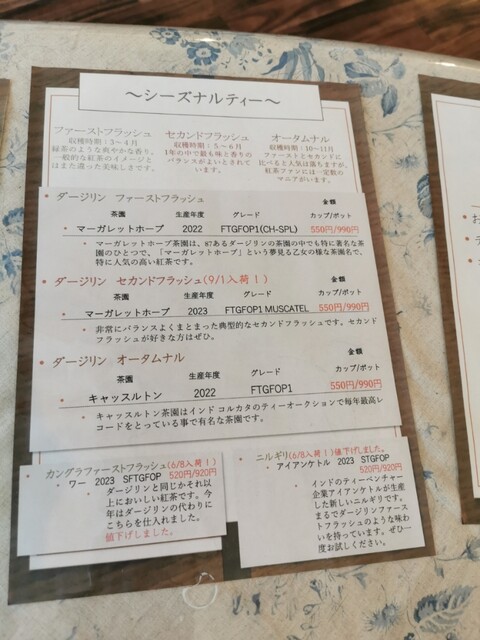 〜シーズナルティー〜
ファーストフラッシュ
収穫時期：3〜4月
緑茶のような爽やかな香り。
一般的な紅茶のイメージと
はまた違った美味しさです。
セカンドフラッシュ
収穫時期：5〜6月
1年の中で最も味と香りの
バランスがよいとされてい
ます。
オータムナル
収穫時期：10〜11月
ファーストとセカンドに
比べると人気は落ちますが、
紅茶ファンには一定数の
マニアがいます。
ダージリン ファーストフラッシュ
金額
茶園 生産年度 グレード カップ/ポット
マーガレットホープ 2022 FTGFOP1(CH-SPL) 550円/990円
マーガレットホープ茶園は、87あるダージリンの茶園の中でも特に著名な茶
園のひとつで、「マーガレットホープ」という夢見る乙女の様な茶園名で、
特に人気の高い紅茶です。
ダージリン セカンドフラッシュ(9/1入荷！)
金額
茶園 生産年度 グレード カップ/ポット
マーガレットホープ 2023 FTGFOP1 MUSCATEL 550円/990円
非常にバランスよくまとまった典型的なセカンドフラッシュです。セカンド
フラッシュが好きな方はぜひ。
ダージリン オータムナル
金額
茶園 生産年度 グレード カップ/ポット
キャッスルトン 2022 FTGFOP1 550円/990円
キャッスルトン茶園はインド コルカタのティーオークションで毎年最高レ
コードをとっている事で有名な茶園です。
カングラファーストフラッシュ(6/8入荷！)
ワー 2023 SFTGFOP 520円/920円
ダージリンと同じかそれ以
上においしい紅茶です。今
年はダージリンの代わりに
こちらを仕入れました。
値下げしました。
ニルギリ(6/8入荷！)値下げしました。
アイアンケトル 2023 STGFOP
520円/920円
インドのティーベンチャー
企業アイアンケトルが生産
した新しいニルギリです。
まるでダージリンファース
トフラッシュのような味わ
いを持っています。ぜひ一
度お試しください。